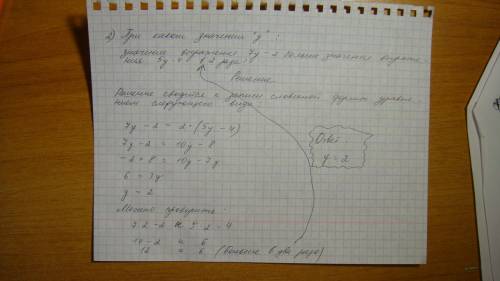 2) При каком значении "y" :
значение выражения 7y - 2 больше значения выраже-
ния 5y - 4 в 2 раза?
Решение
Решение сводится к записи словесной формы уравне-
нием следующего вида:
7y - 2 = 2·(5y - 4)
7y - 2 = 10y - 8
-2 + 8 = 10y - 7y
6 = 3y
y = 2
Ответ:
y = 2
Можно проверить
7·2 - 2 и 5·2 - 4
14 - 2 и 6
12 и 6 (больше в два раза)